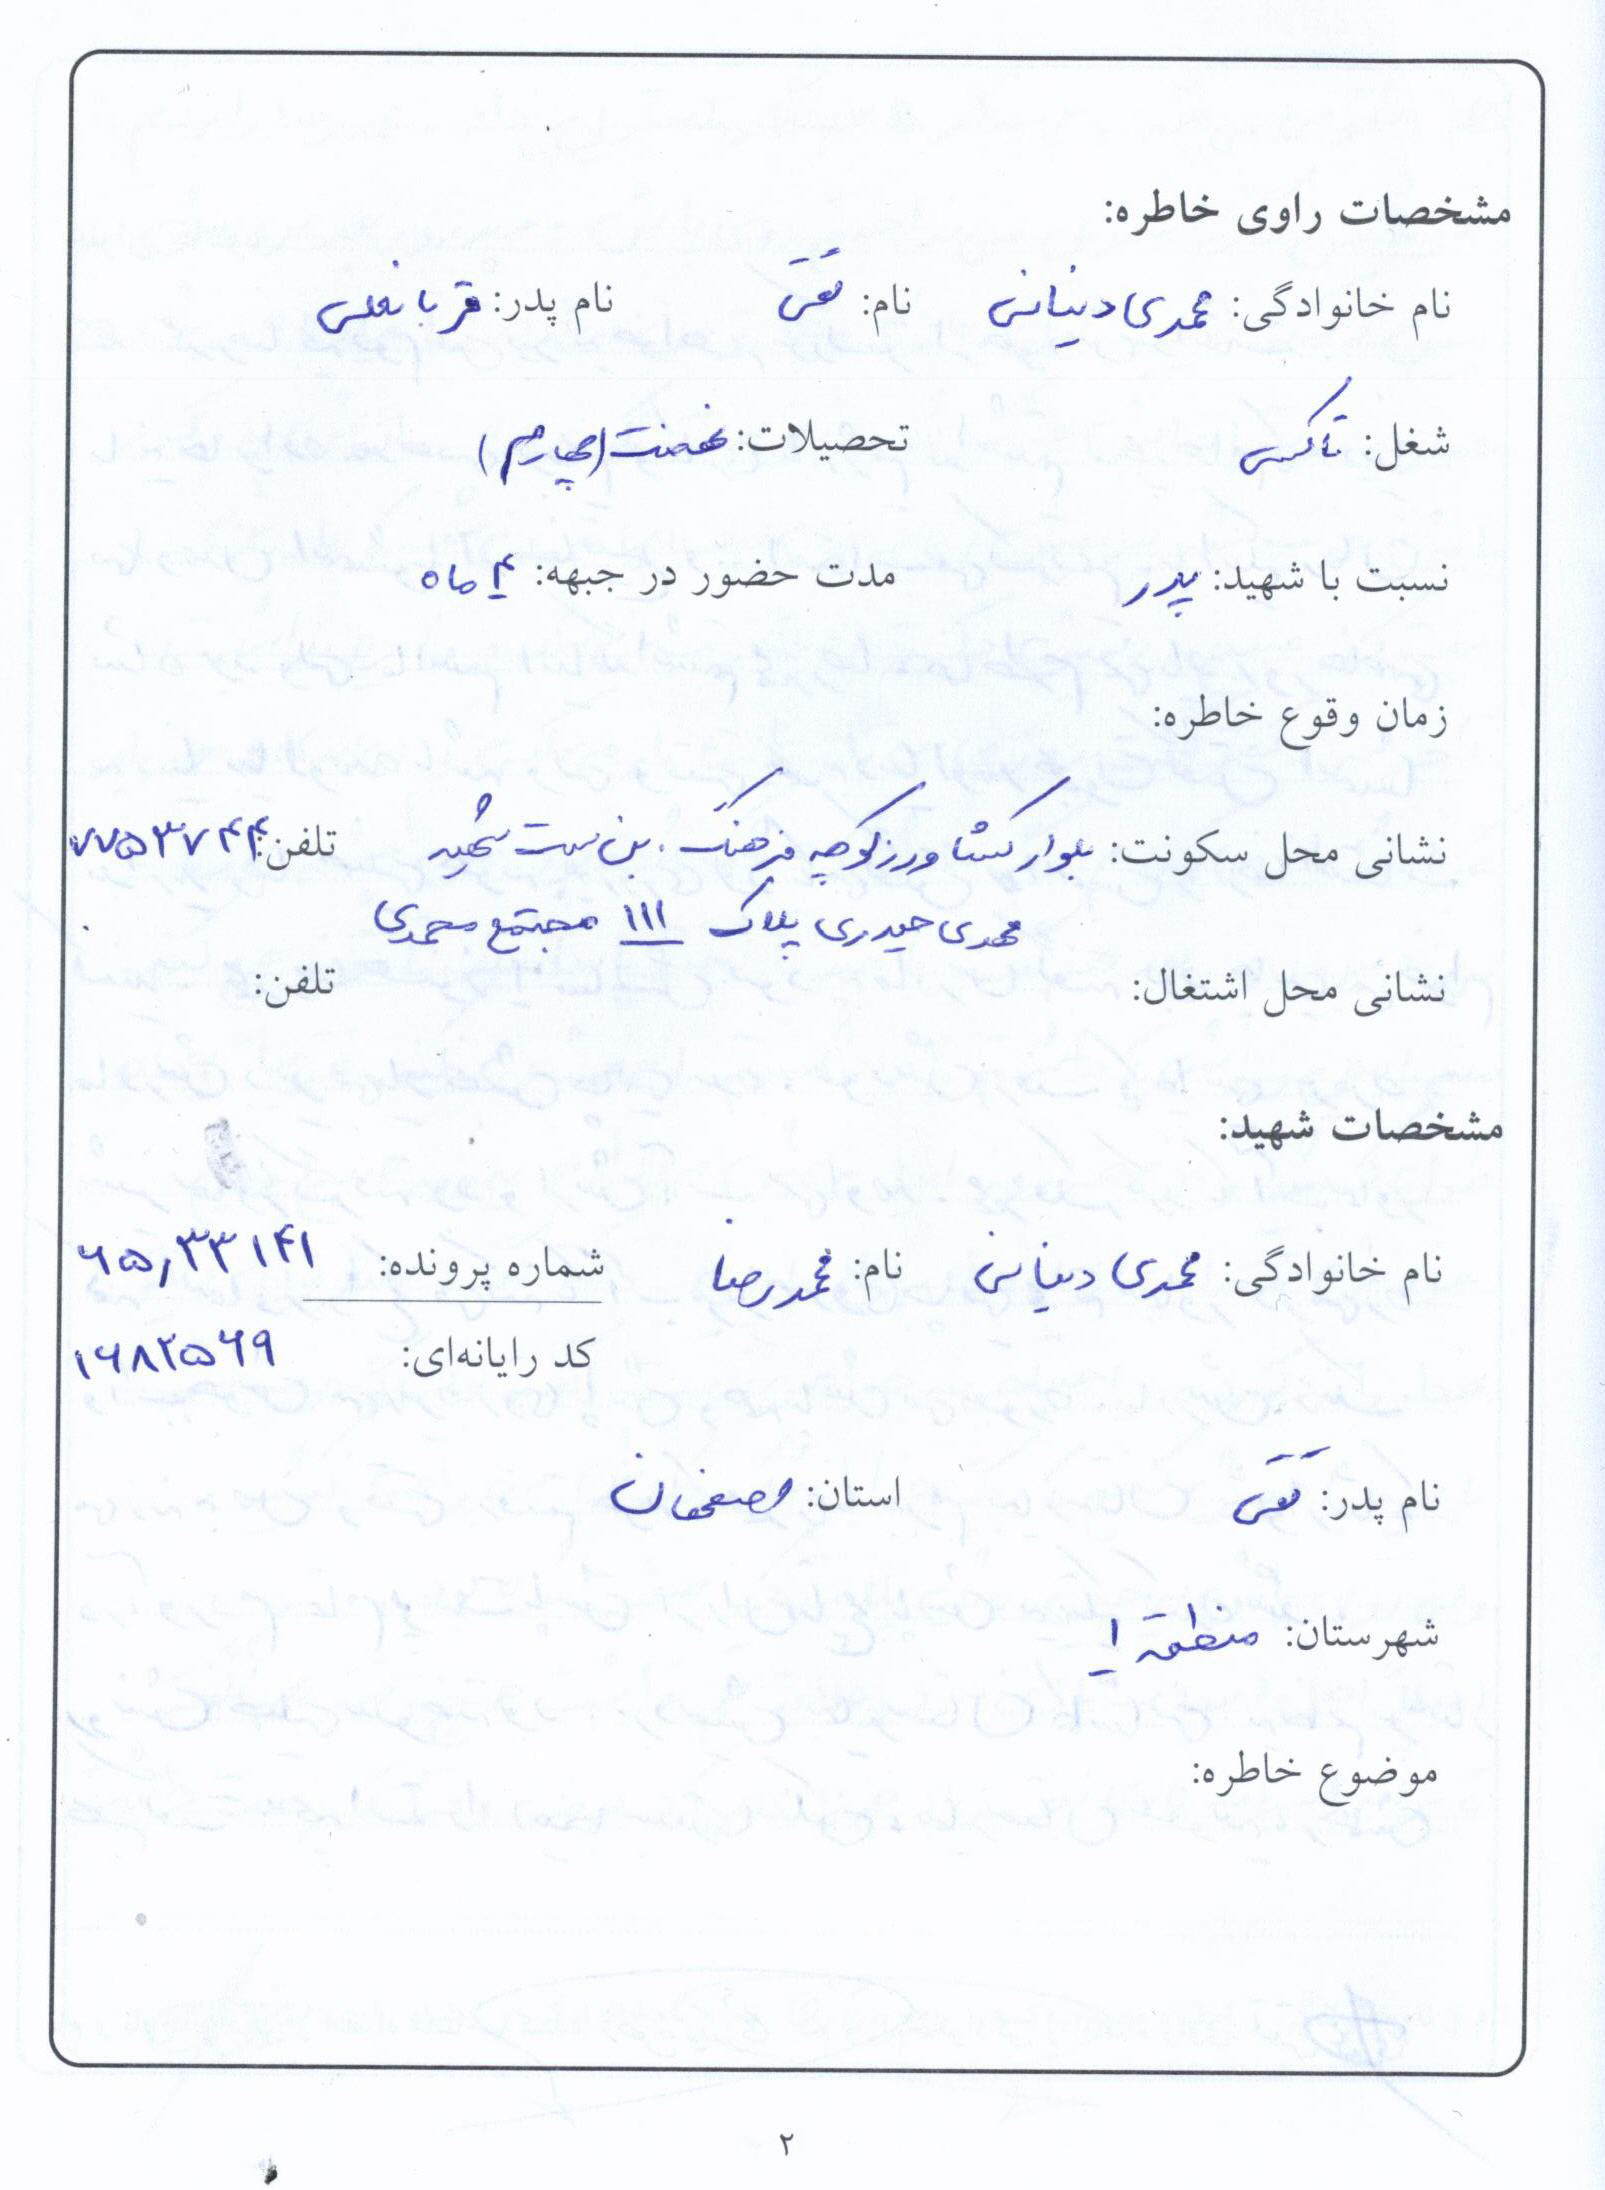 مشخصات راوی خاطره:
نام خانوادگی: محمدی دینانی نام: تقی نام پدر: قربانعلی
شغل: تاکسی تحصیلات: نهضت (چهارم)
نسبت با شهید: پدر مدت حضور در جبهه: ۴ ماه
زمان وقوع خاطره:
نشانی محل سکونت: بلوار کشاورز کوچه فرهنگ، بن بست شهید تلفن: ۷۷۵۳۷۴۴
مهدی حیدری پلاک ۱۱۱ مجتمع محمدی
نشانی محل اشتغال: تلفن:
مشخصات شهید:
نام خانوادگی: محمدی دینانی نام: محمدرضا شماره پرونده: ۶۵٫۳۳۱۴۱
کد رایانه‌ای: ۱۶۸۲۵۶۹
نام پدر: تقی استان: اصفهان
شهرستان: منطقه ۱
موضوع خاطره:
۲